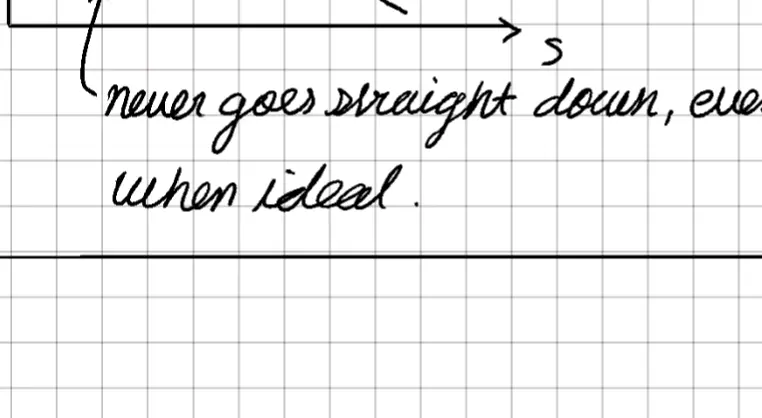 s
never goes straight down, eve
when ideal.